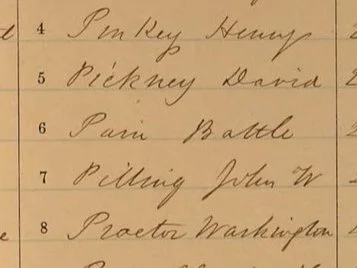 4 Pinkey Henry
5 Pickney David
6 Pain Battle
7 Pilling John W
8 Proctor Washington